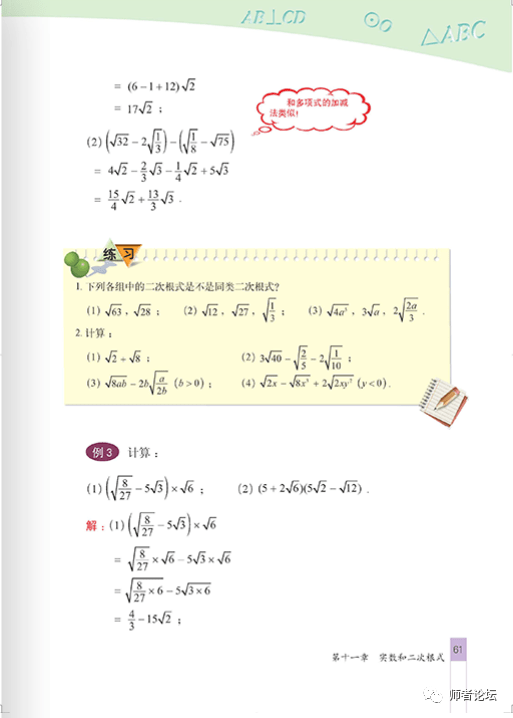 AB⊥CD
⊙o
△ABC
= (6-1+12)√2
= 17√2 ;
和多项式的加减
法类似!
(2) (√32 - 2√(1/3)) - (√(1/8) - √75)
= 4√2 - 2/3√3 - 1/4√2 + 5√3
= 15/4√2 + 13/3√3 .
练习
1. 下列各组中的二次根式是不是同类二次根式?
(1) √63 , √28 ; (2) √12 , √27 , √(1/3) ; (3) √(4a³) , 3√a , 2√(2a/3) .
2. 计算 :
(1) √2 + √8 ; (2) 3√40 - √(2/5) - 2√(1/10) ;
(3) √(8ab) - 2b√(a/2b) (b>0) ; (4) √(2x) - √(8x³) + 2√(2xy²) (y<0) .
例3 计算 :
(1) (√(8/27) - 5√3) × √6 ; (2) (5+2√6)(5√2 - √12) .
解 : (1) (√(8/27) - 5√3) × √6
= √(8/27) × √6 - 5√3 × √6
= √(8/27 × 6) - 5√(3×6)
= 4/3 - 15√2 ;
第十一章 实数和二次根式 61
师者论坛